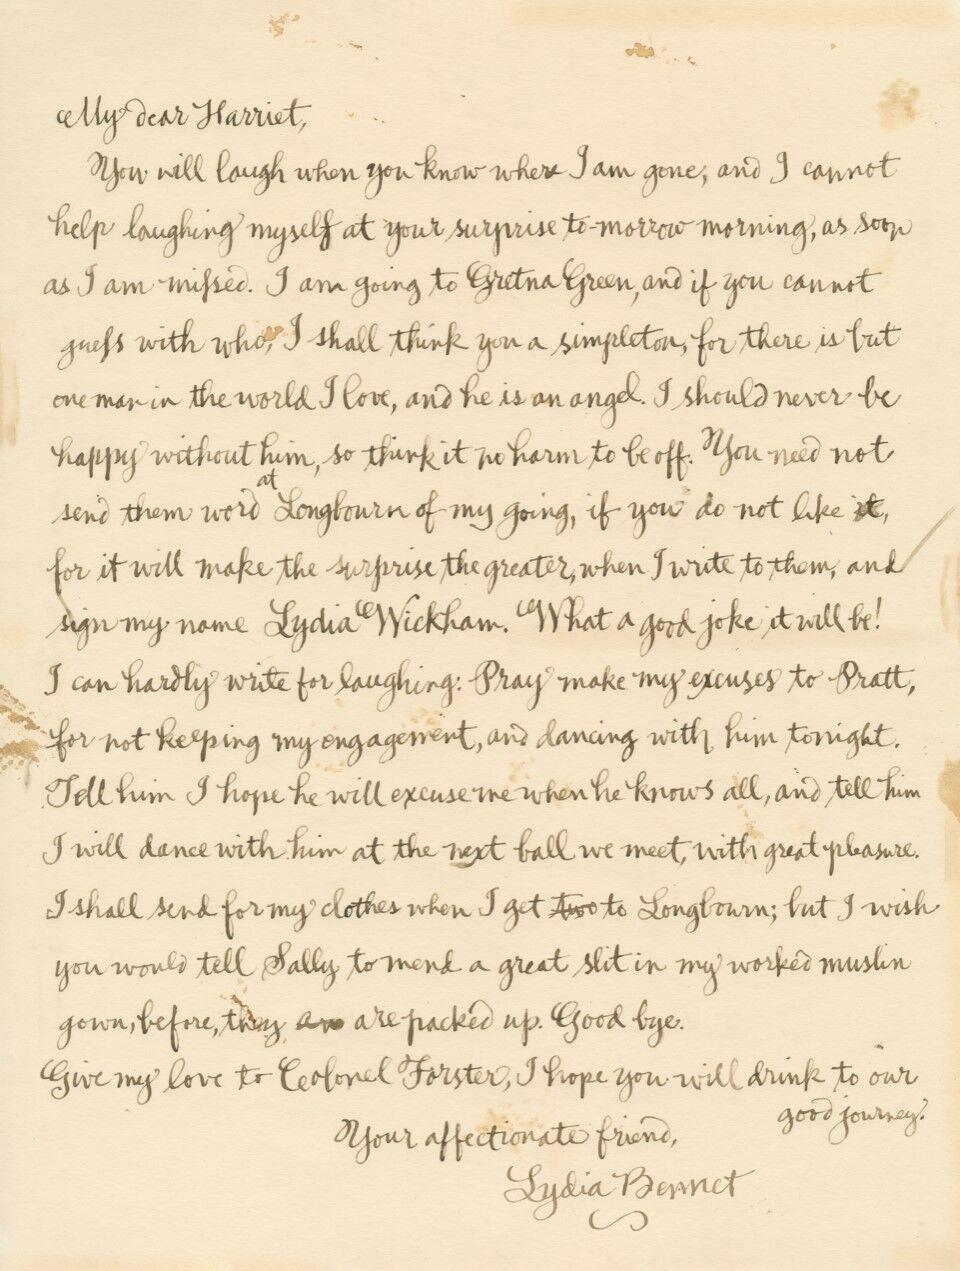 My dear Harriet,
You will laugh when you know where I am gone, and I cannot
help laughing myself at your surprise to-morrow morning, as soon
as I am miſsed. I am going to Gretna Green, and if you cannot
gueſs with who, I shall think you a simpleton, for there is but
one man in the world I love, and he is an angel. I should never be
happy without him, so think it no harm to be off. You need not
send them word at Longbourn of my going, if you do not like it,
for it will make the surprise the greater, when I write to them, and
sign my name Lydia Wickham. What a good joke it will be!
I can hardly write for laughing: Pray make my excuses to Pratt,
for not keeping my engagement, and dancing with him tonight.
Tell him I hope he will excuse me when he knows all, and tell him
I will dance with him at the next ball we meet, with great pleasure.
I shall send for my clothes when I get two to Longbourn; but I wish
you would tell Sally to mend a great slit in my worked muslin
gown, before, they are are packed up. Good bye.
Give my love to Colonel Forster, I hope you will drink to our
good journey.
Your affectionate friend,
Lydia Bennet